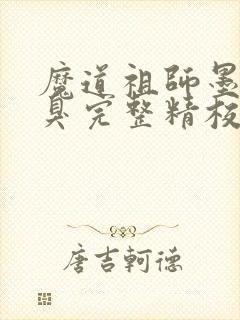 魔道祖師墨
臭完整精校
唐吉軻德